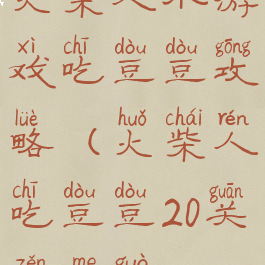 火柴人来游
xì chī dòu dòu gōng
戏吃豆豆攻
lüè huǒ chái rén
略（火柴人
chī dòu dòu guān
吃豆豆20关
zěn me guò